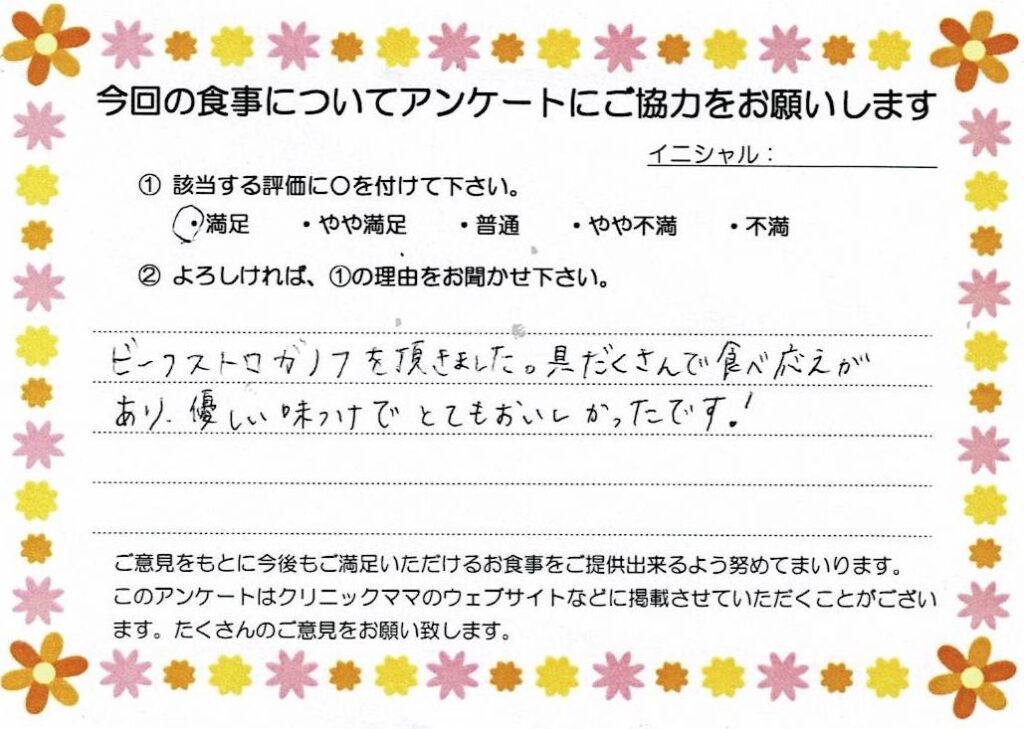 今回の食事についてアンケートにご協力をお願いします
イニシャル：
① 該当する評価に〇を付けて下さい。
・満足 ・やや満足 ・普通 ・やや不満 ・不満
② よろしければ、①の理由をお聞かせ下さい。
ビーフストロガノフを頂きました。具だくさんで食べ応えが
あり、優しい味つけでとてもおいしかったです！
ご意見をもとに今後もご満足いただけるお食事をご提供出来るよう努めてまいります。
このアンケートはクリニックママのウェブサイトなどに掲載させていただくことがござい
ます。たくさんのご意見をお願い致します。